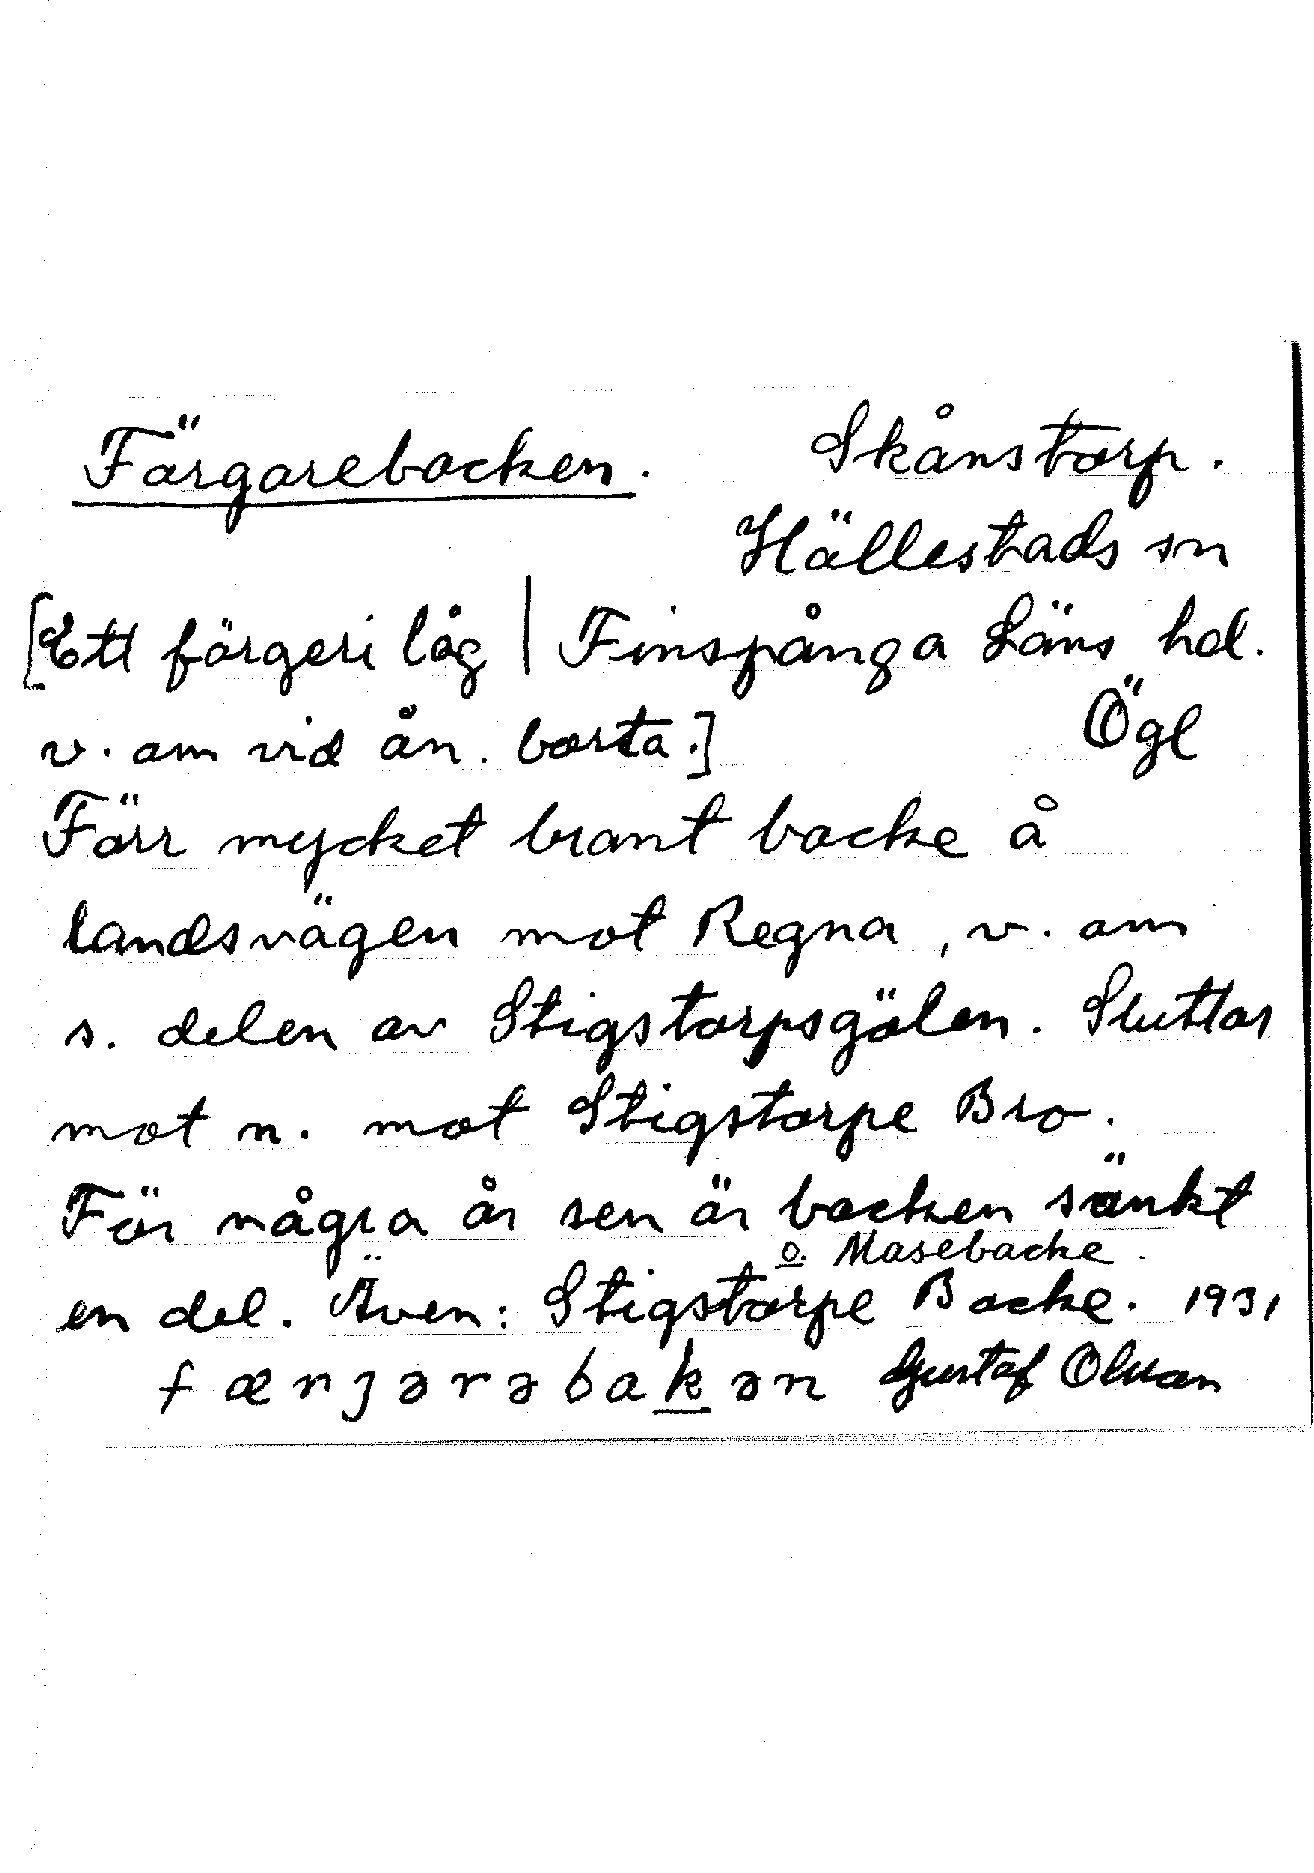 Färgarebacken. Skånstorp.
Hällestads sn
[Ett färgeri låg | Finspånga Läns hd.
v. om vid ån. borta.] Ögl
Förr mycket brant backe å
landsvägen mot Regna, v. om
s. delen av Stigstorpsgölen. Sluttar
mot n. mot Stigstorpe Bro.
För några år sen är backen sänkt
o. Masebacke.
en del. Även: Stigstorpe Backe. 1931
færjərəbakən Gustaf Olsson